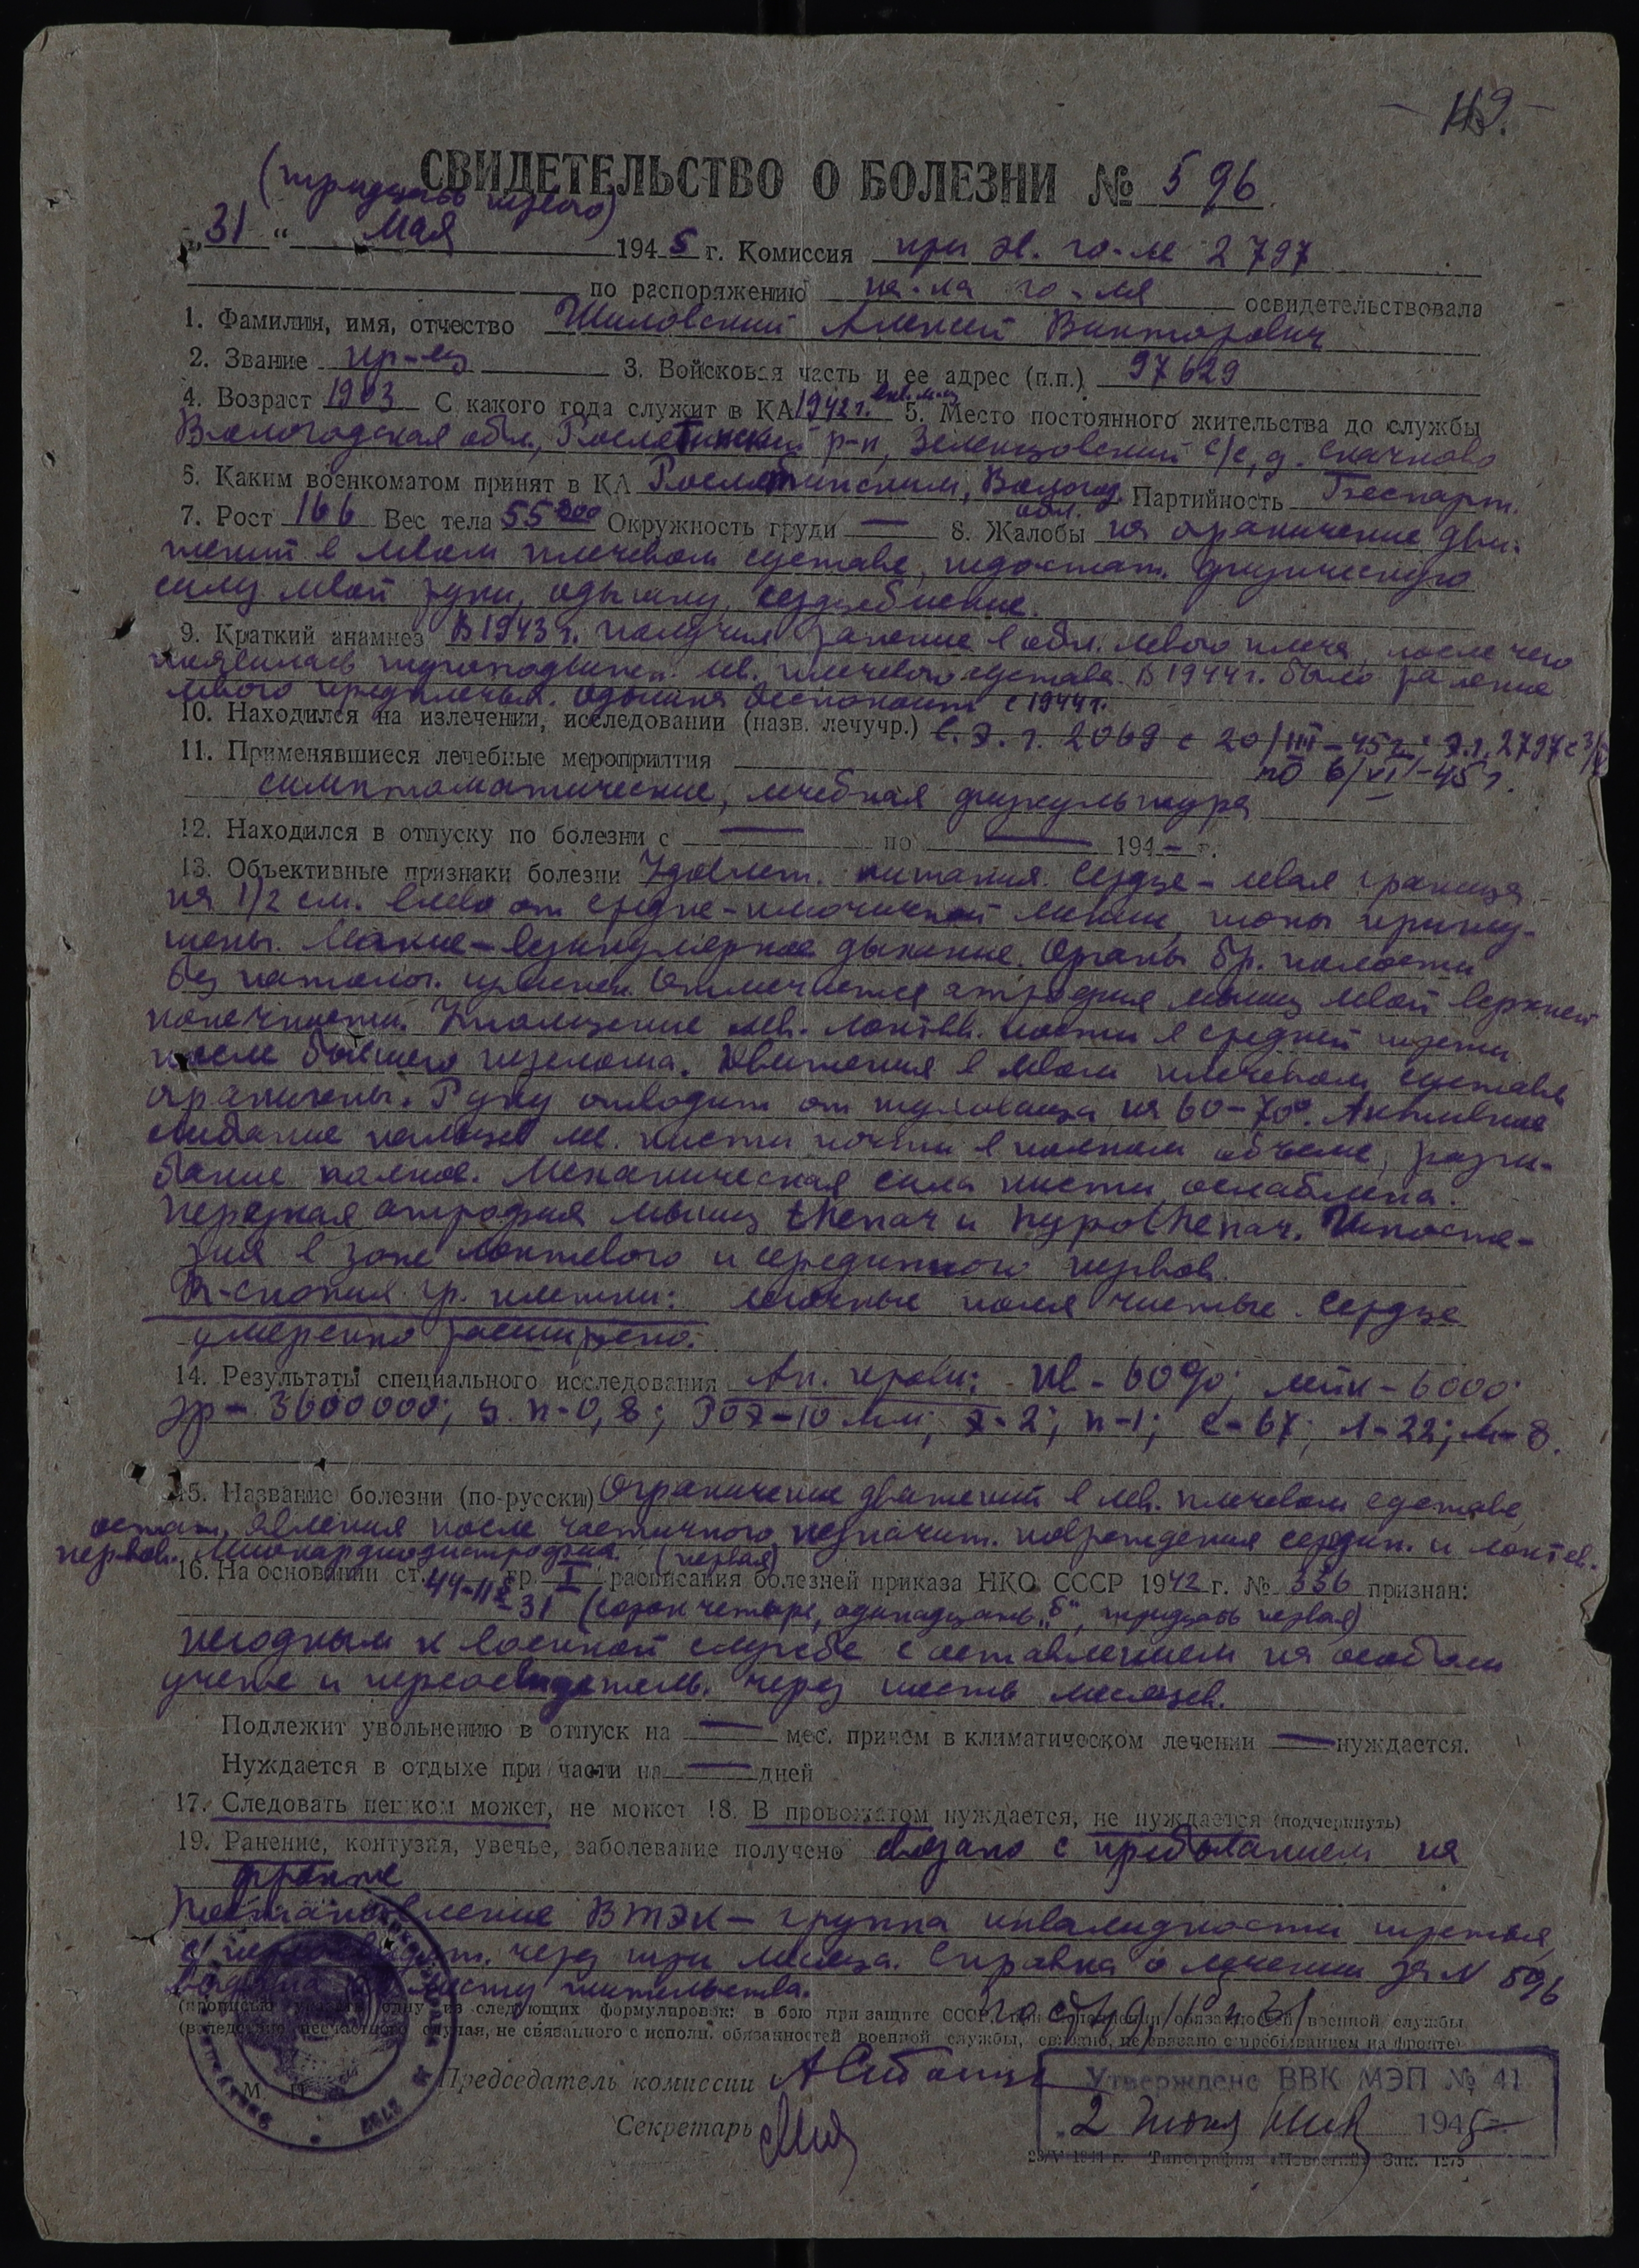 119.
СВИДЕТЕЛЬСТВО О БОЛЕЗНИ № 596.
(тридцать первого)
„31" Мая 1945 г. Комиссия при эв. го-ле 2797
по распоряжению на-ка го-ля освидетельствовала
1. Фамилия, имя, отчество Шиловский Алексей Викторович
2. Звание кр-ец 3. Войсковая часть и ее адрес (п.п.) 97629
4. Возраст 1903 С какого года служит в КА 1942 г. 5. Место постоянного жительства до службы
Вологодская обл., Рослятинский р-н, Зеленцовский с/с, д. Скачково
6. Каким военкоматом принят в КА Рослятинским, Вологод. обл. Партийность Беспарт.
7. Рост 166 Вес тела 55 300 Окружность груди — 8. Жалобы на ограничение дви-
жений в левом плечевом суставе, недостат. физическую
силу левой руки, одышку, сердцебиение.
9. Краткий анамнез В 1943 г. получил ранение в обл. левого плеча, после чего
появилась тугоподвижн. лев. плечевого сустава. В 1944 г. было ранение
левого предплечья. Одышка беспокоит с 1944 г.
10. Находился на излечении, исследовании (назв. лечучр.) С.Э.Г. 2069 с 20/III-45 г. Э.Г. 2797 с 3/
по 6/VI-45 г.
11. Применявшиеся лечебные мероприятия
симптоматические, лечебная физкультура
12. Находился в отпуску по болезни с — по — 194- г.
13. Объективные признаки болезни Удовлет. питания. Сердце - левая граница
на 1/2 см. влево от средне-ключичной линии, тоны приглу-
шены. Легкие - везикулярное дыхание. Органы бр. полости
без патолог. изменен. Отмечается атрофия мышц левой верхней
конечности. Утолщение лев. локтев. кости в средней трети
после бывшего перелома. Движения в левом плечевом суставе
ограничены. Руку отводит от туловища на 60-70°. Активное
сгибание пальцев лев. кисти почти в полном объеме, разги-
бание полное. Механическая сила кисти ослаблена.
Нерезкая атрофия мышц thenar и hypothenar. Гипосте-
зия в зоне локтевого и серединного нервов.
R-скопия гр. клетки: легочные поля чистые. Сердце
умеренно расширено.
14. Результаты специального исследования Ан. крови: Hb - 60%; лейк - 6000;
эр - 3600000; ц.п-0,8; РОЭ-10 мм; э-2; п-1; с-67; л-22; м-8.
15. Название болезни (по-русски) Ограничение движений в лев. плечевом суставе,
остат. явления после частичного незначит. повреждения средин. и локтев.
нервов. Миокардиодистрофия. (первая)
16. На основании ст. 44-11б-31 гр. I расписания болезней приказа НКО СССР 1942 г. № 336 признан:
(сорок четыре, одинадцать „б", тридцать первая)
негодным к военной службе с оставлением на особом
учете и переосвидетельв. через шесть месяцев.
Подлежит увольнению в отпуск на — мес. причем в климатическом лечении — нуждается.
Нуждается в отдыхе при части на — дней
17. Следовать пешком может, не может 18. В провожатом нуждается, не нуждается (подчеркнуть)
19. Ранение, контузия, увечье, заболевание получено связано с пребыванием на
фронте
Постановление ВТЭК - группа инвалидности третья,
с переосвидет. через три месяца. Справка о лечении за N 596
выдана по месту жительства.
(прописью указать одну из следующих формулировок: в бою при защите СССР, при исполнении обязанностей военной службы,
(вследствие несчастного случая, не связанного с исполн. обязанностей военной службы, связано, не связано с пребыванием на фронте)
М. П.
2797
Председатель комиссии
Секретарь
Утверждено ВВК МЭП № 41
2 Июня 1945
23/V 1944 г. Типография «Новостей» Зак. 1275